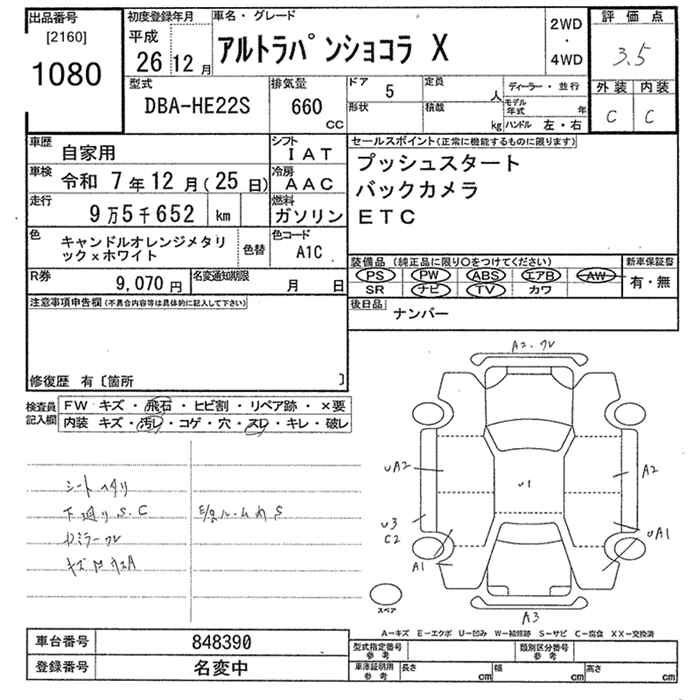 出品番号
[2160]
1080
初度登録年月
平成
26 12 月
車名・グレード
アルトラパンショコラ X
2WD
・
4WD
評価点
3.5
外装 内装
C C
型式
DBA-HE22S
排気量
660
CC
ドア
5
形状
定員
人
積載
kg
ディーラー・並行
モデル年式 年
ハンドル 左・右
車歴
自家用
シフト
IAT
車検
令和 7年 12月(25日)
冷房
AAC
走行
9万5千652 km
燃料
ガソリン
色
キャンドルオレンジメタリ
ック×ホワイト
色替
色コード
A1C
R券
9,070 円
名変通知期限
月 日
セールスポイント(正常に機能するものに限ります)
プッシュスタート
バックカメラ
ETC
装備品 (純正品に限り○をつけてください)
PS PW ABS エアB AW
SR ナビ TV カワ
新車保証書
有・無
後日品
ナンバー
注意事項申告欄(不具合内容等は具体的に記入して下さい)
修復歴 有〔箇所 〕
検査員
記入欄
FW キズ・飛石・ヒビ割・リペア跡・×要
内装 キズ・汚レ・コゲ・穴・スレ・キレ・破レ
シートヘタリ
下廻りS.C
A2.ワレ
UA2
U1
A2
U3
C2
UA1
A1
A3
スペア
A−キズ E−エクボ U−凹み W−補修跡 S−サビ C−腐食 XX−交換済
車台番号
848390
登録番号
名変中
型式指定番号
参考
類別区分番号
参考
車庫証明用
参考
長さ cm 幅 cm 高さ cm